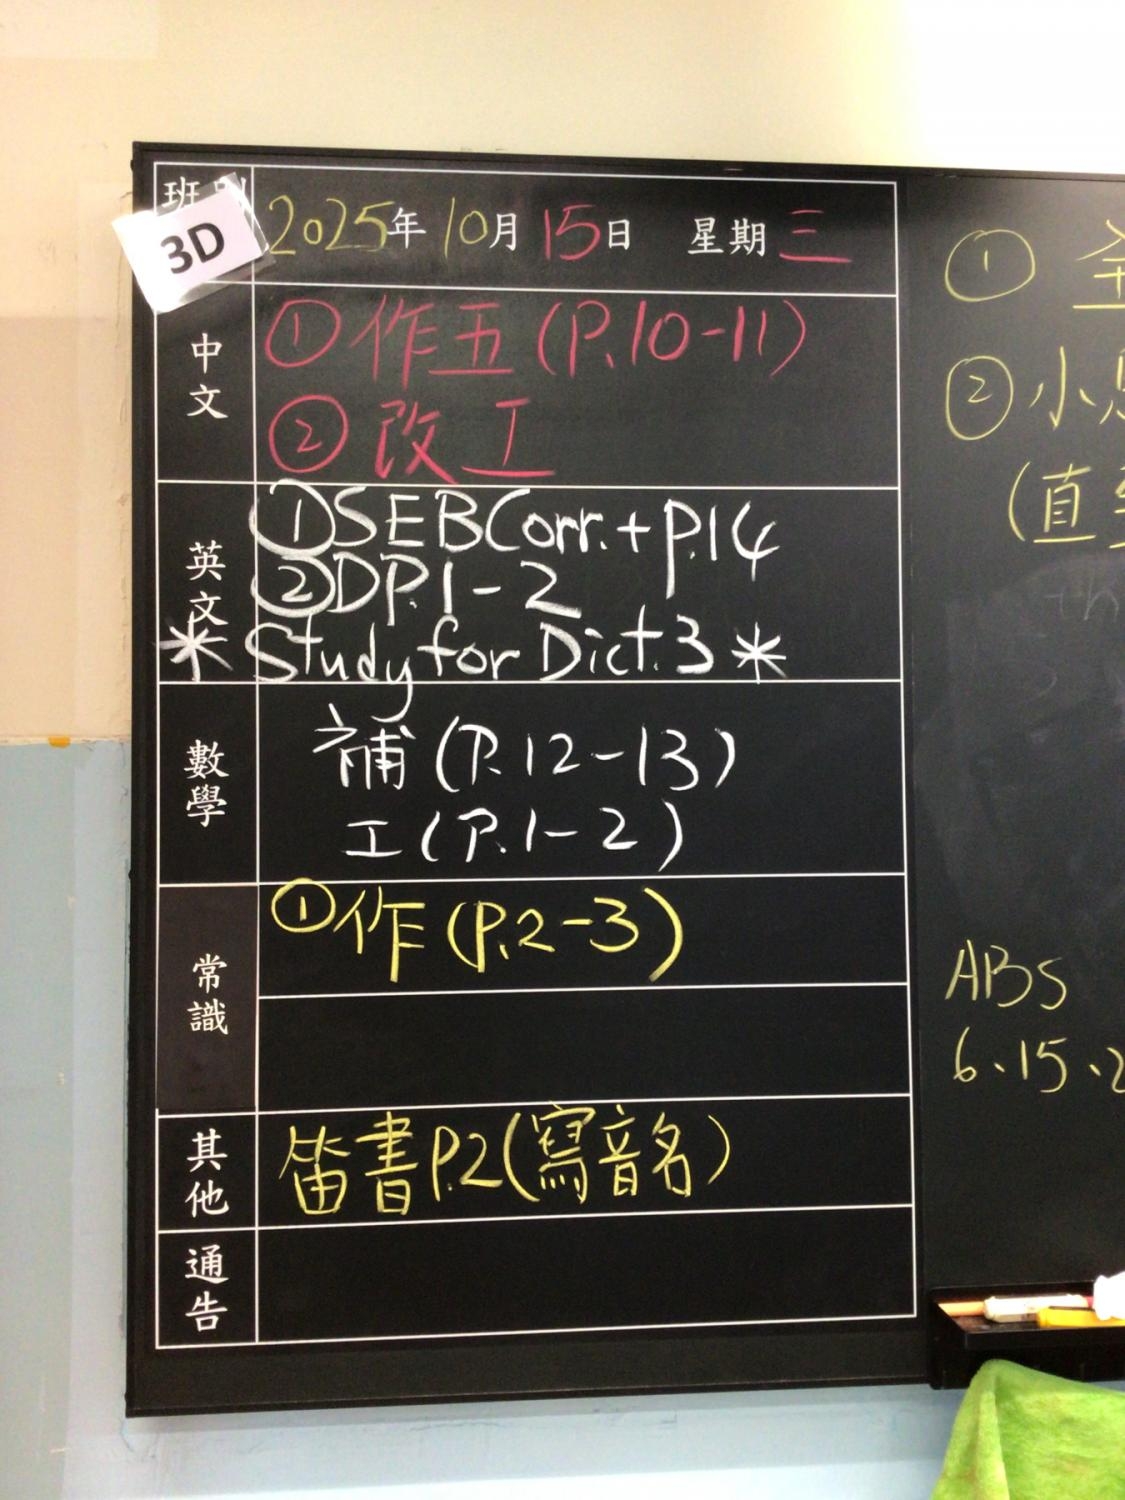 班別
3D
2025年 10月 15日 星期三
中文
①作五(P.10-11)
②改工
英文
①SEBCorr.+P.14
②DP.1-2
*Study for Dict.3*
數學
補(P.12-13)
工(P.1-2)
常識
①作(P.2-3)
其他
笛書P.2(寫音名)
通告
①
②小
(直
ABS
6、15、2